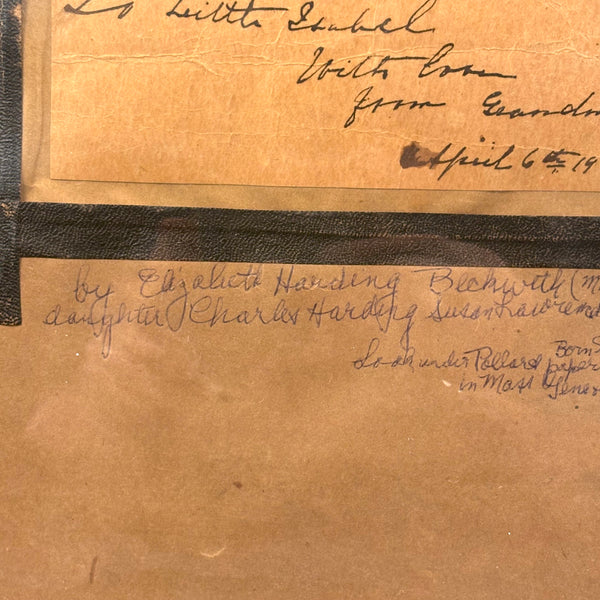 To Little Isabel
With Love
from Grandm
April 6th 19
by Elizabeth Harding Beckwith (M
daughter Charles Harding Susan Lawrence
Look under Pollard paper
Born
in Mass Gene